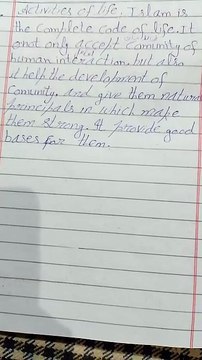 activities of life. Islam is
the complete code of life. It
not only accept comunity of
human interaction. but also
it help the development of
Comunity. and give them natural
principals in which make
them strong. It provide good
bases for them.